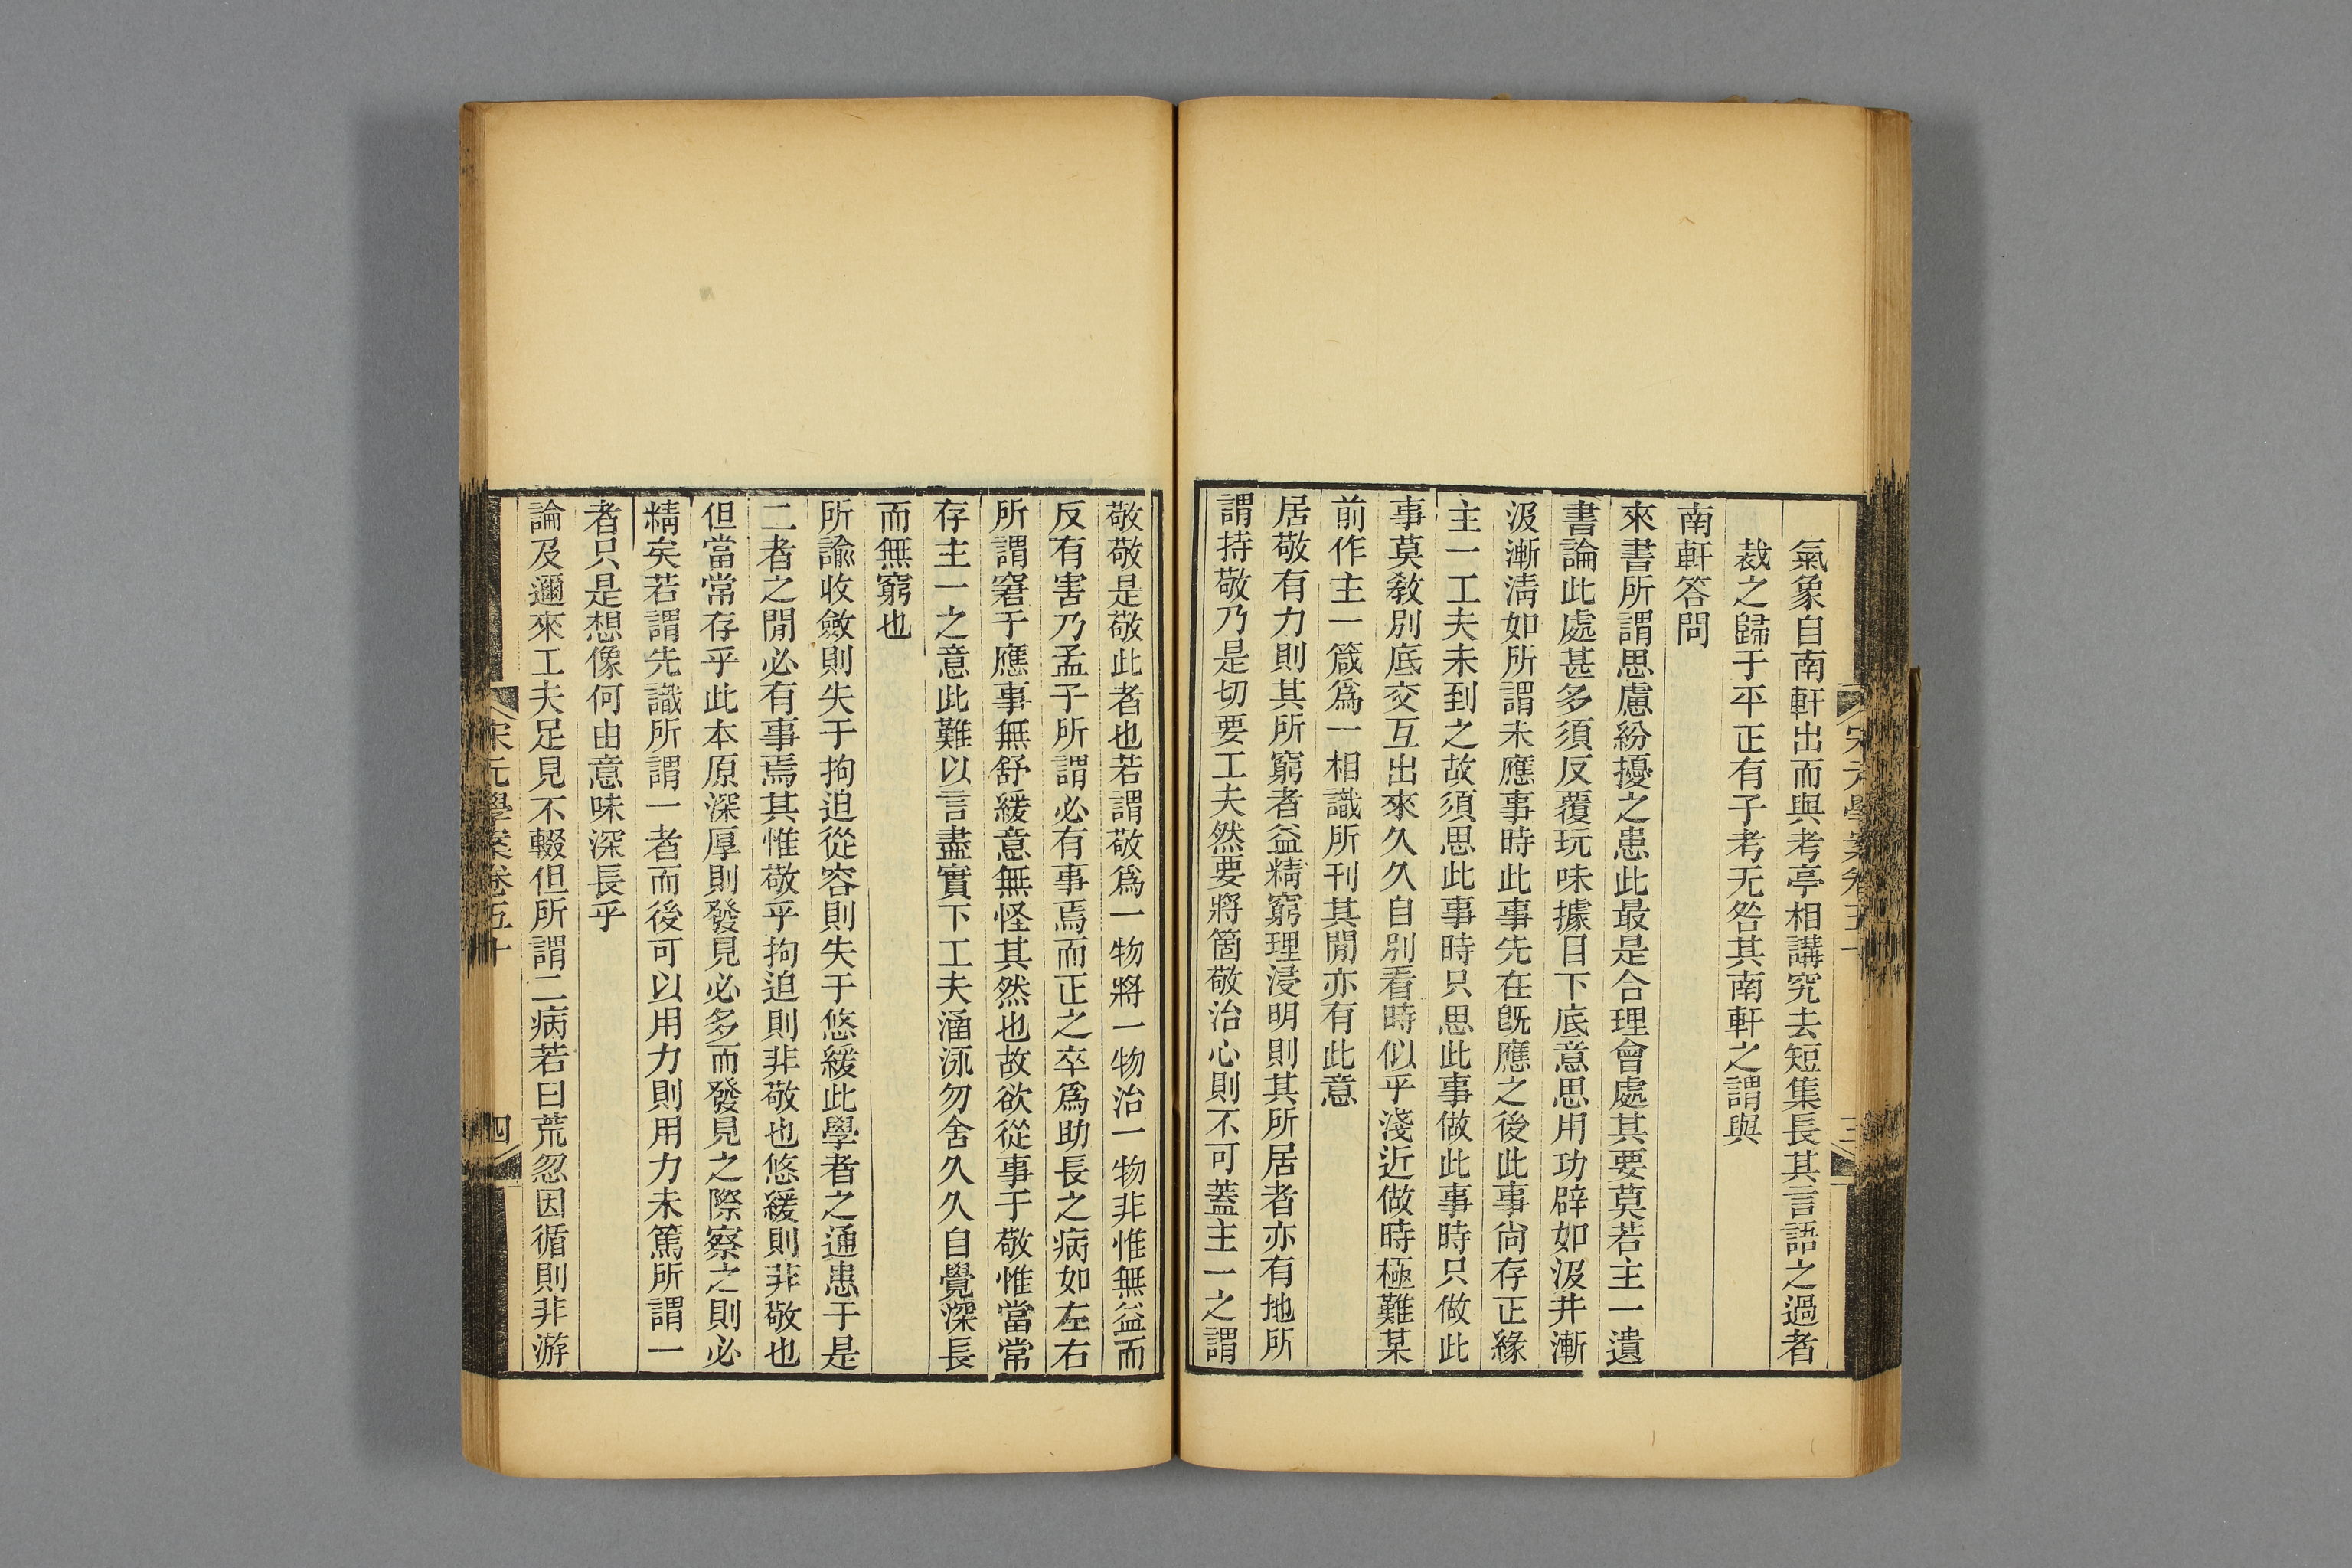 氣象自南軒出而與考亭相講究去短集長其言語之過者
裁之歸于平正有子考无咎其南軒之謂與
南軒答問
來書所謂思慮紛擾之患此最是合理會處其要莫若主一遺
書論此處甚多須反覆玩味據目下底意思用功辟如汲井漸
汲漸淸如所謂未應事時此事先在旣應之後此事尙存正緣
主一工夫未到之故須思此事時只思此事做此事時只做此
事莫敎別底交互出來久久自別看時似乎淺近做時極難某
前作主一箴爲一相識所刊其閒亦有此意
居敬有力則其所窮者益精窮理浸明則其所居者亦有地所
謂持敬乃是切要工夫然要將箇敬治心則不可蓋主一之謂
敬敬是敬此者也若謂敬爲一物將一物治一物非惟無益而
反有害乃孟子所謂必有事焉而正之卒爲助長之病如左右
所謂窘于應事無舒緩意無怪其然也故欲從事于敬惟當常
存主一之意此難以言盡實下工夫涵泳勿舍久久自覺深長
而無窮也
所諭收斂則失于拘迫從容則失于悠緩此學者之通患于是
二者之閒必有事焉其惟敬乎拘迫則非敬也悠緩則非敬也
但當常存乎此本原深厚則發見必多而發見之際察之則必
精矣若謂先識所謂一者而後可以用力則用力未篤所謂一
者只是想像何由意味深長乎
論及邇來工夫足見不輟但所謂二病若曰荒忽因循則非游
宋元學案卷五十
四